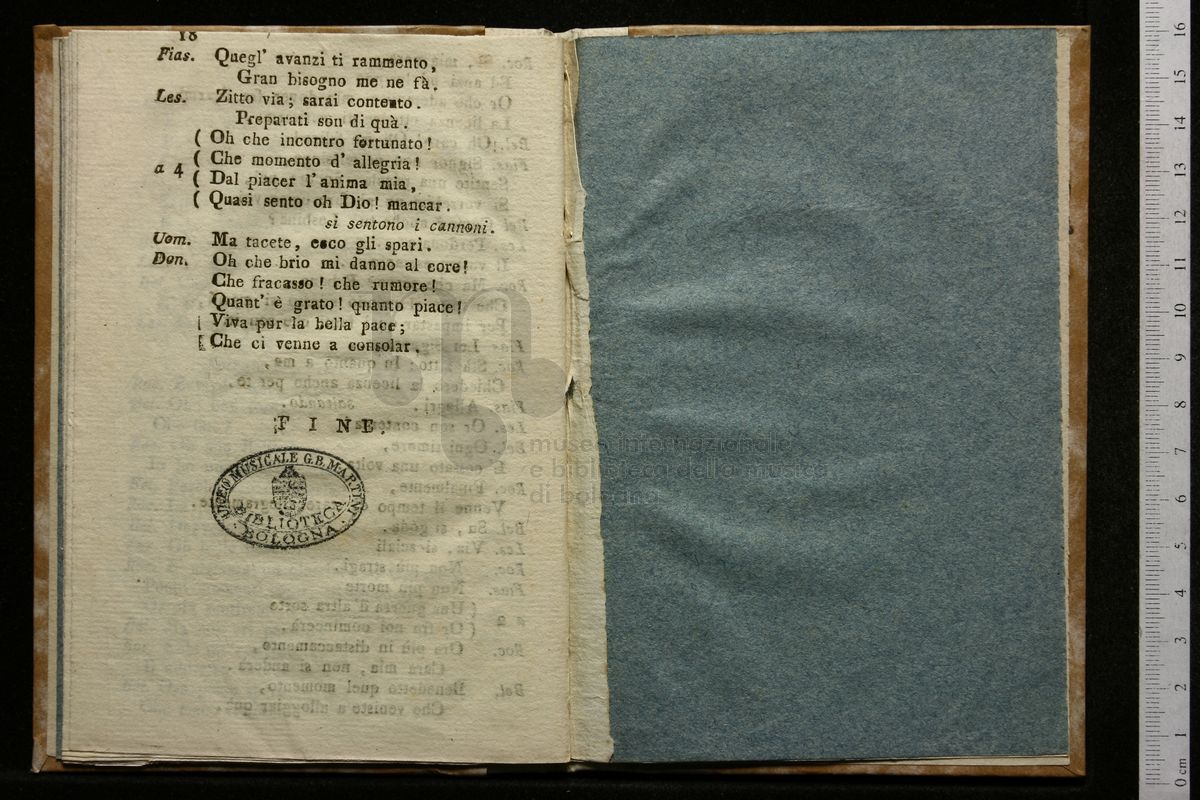 18
Fias. Quegl' avanzi ti rammento,
Gran bisogno me ne fà.
Les. Zitto via; sarai contento.
Preparati son di quà.
( Oh che incontro fortunato!
( Che momento d' allegria!
a 4
( Dal piacer l'anima mia,
( Quasi sento oh Dio! mancar.
si sentono i cannoni.
Uom. Ma tacete, ecco gli spari.
Don. Oh che brio mi danno al core!
Che fracasso! che rumore!
Quant' è grato! quanto piace!
Viva pur la bella pace;
[ Che ci venne a consolar.
FINE.
LICEO MUSICALE G.B. MARTINI
BIBLIOTECA
BOLOGNA
museo internazionale
e biblioteca della musica
di bologna
0 cm 1 2 3 4 5 6 7 8 9 10 11 12 13 14 15 16